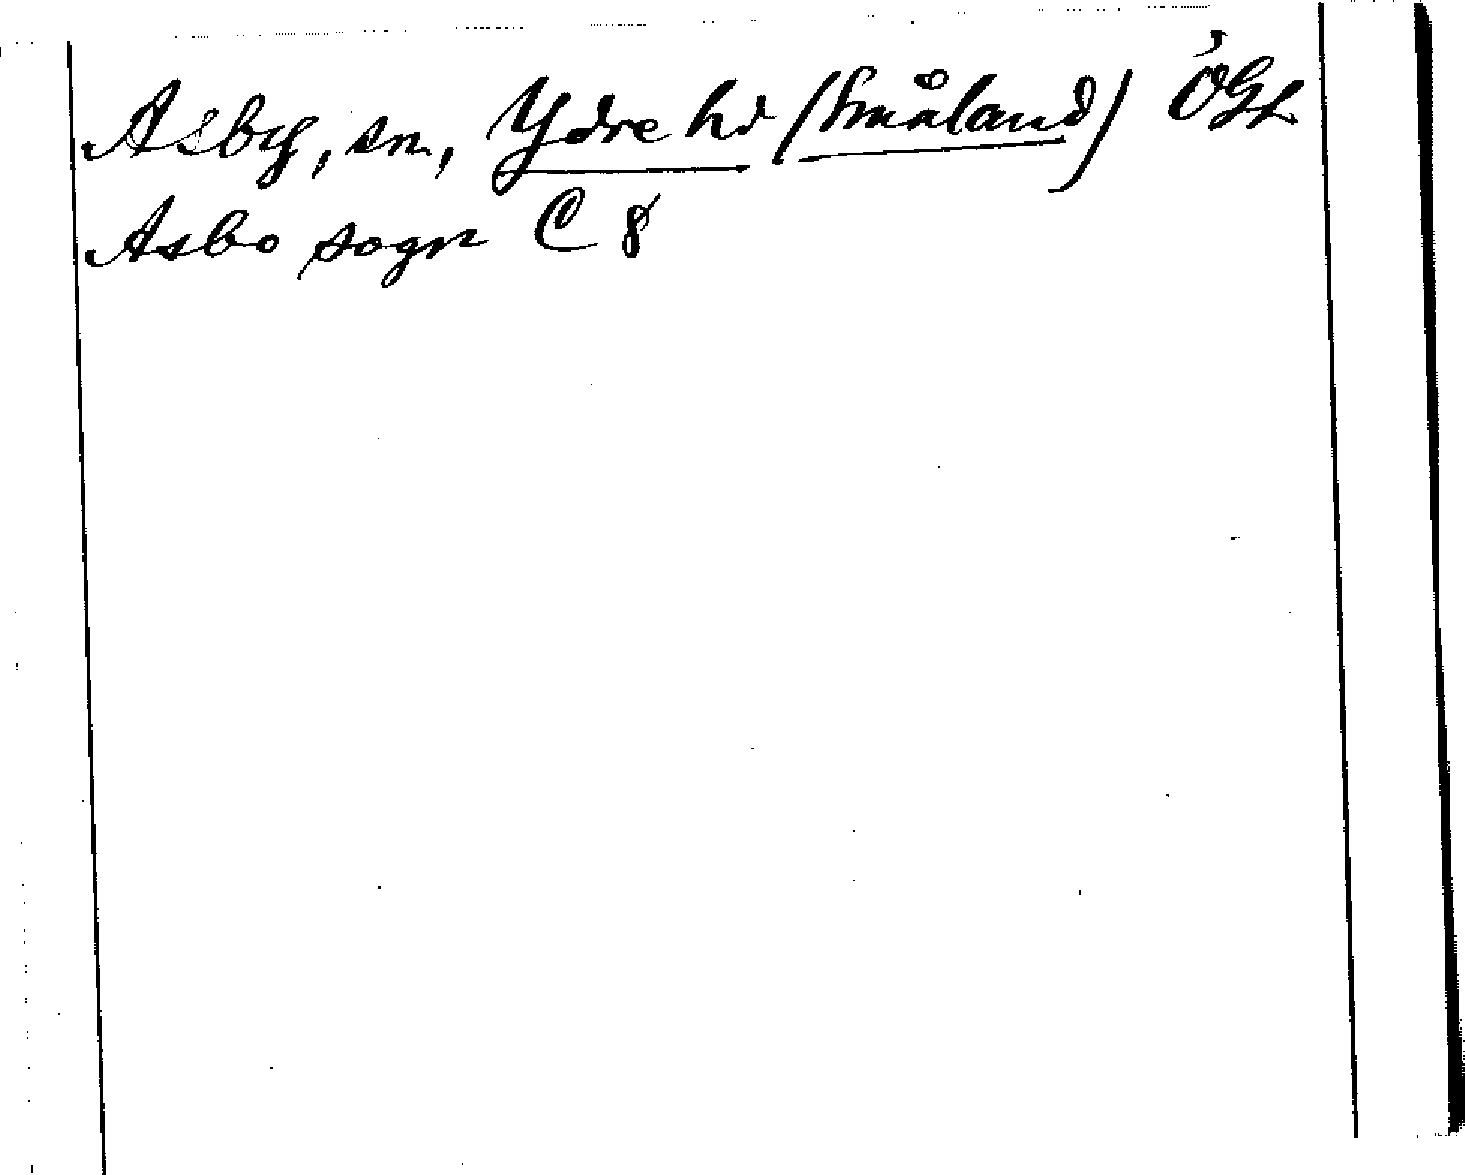 Asby, sn, Ydre hd (Småland) ÖGL
Asbo sogn C 8